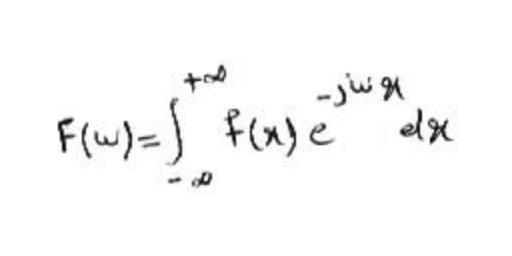 F(ω)=∫_{-∞}^{+∞} f(x) e^{-jωx} dx